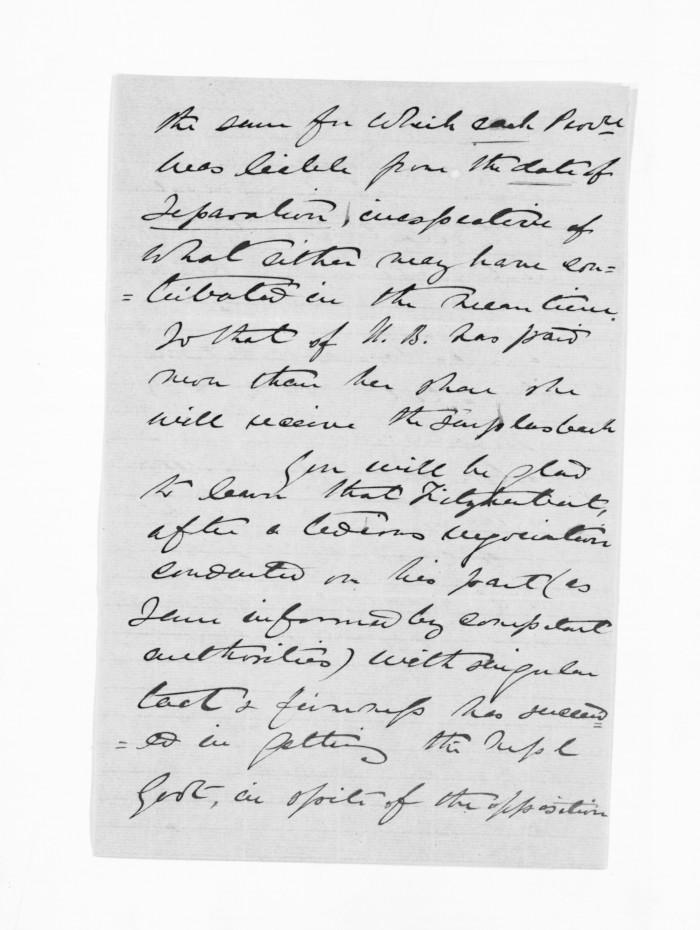 the sum for which each Provce
was liable from the date of
Separation, irrespective of
what either may have con=
=tributed in the meantime.
So that if H. B. has paid
more than her share she
will receive the surplus back
You will be glad
to learn that Fitzherbert,
after a tedious negotiation
conducted on his part (as
I am informed by competent
authorities) with singular
tact & firmness has succeed=
=ed in getting the Impl
Govt, in spite of the opposition